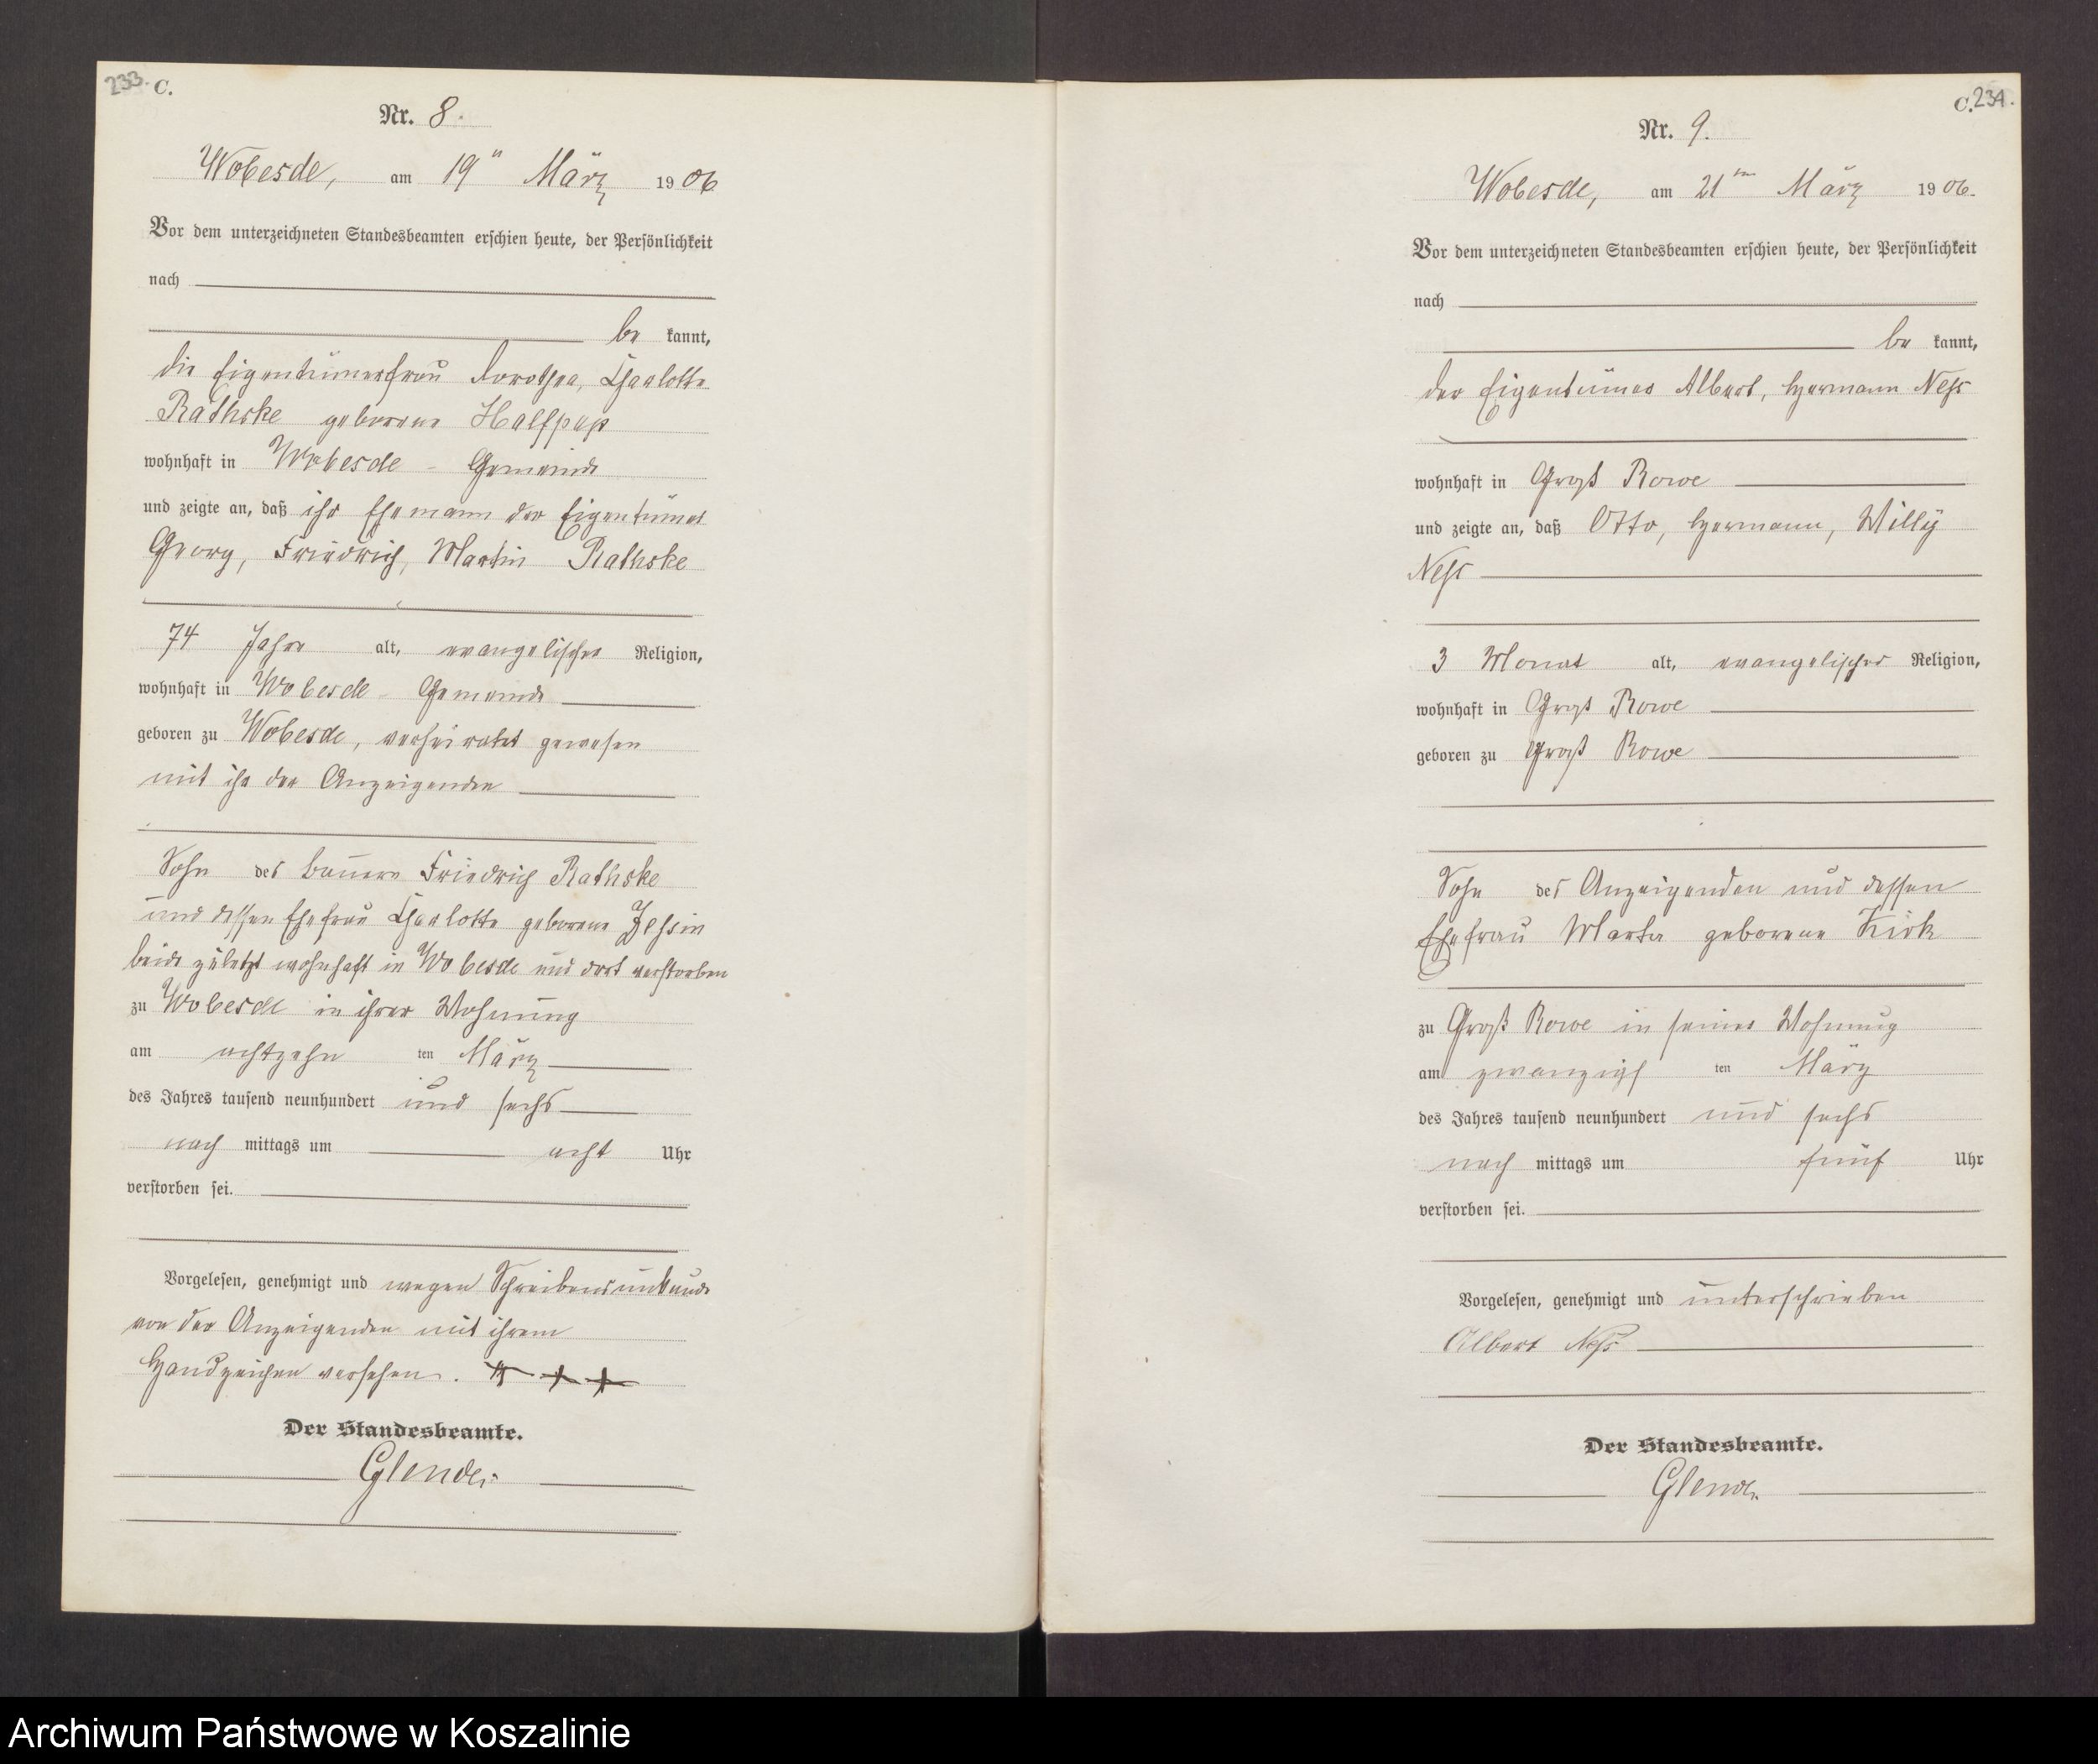 233. C.
Nr. 8.
Wobesde, am 19n März 1906
Vor dem unterzeichneten Standesbeamten erschien heute, der Persönlichkeit
nach
be kannt,
die Eigentümerfrau Dorothea, Charlotte
Rathske geborene Halfpap
wohnhaft in Wobesde - Gemeinde
und zeigte an, daß ihr Ehemann der Eigentümer
Georg, Friedrich, Martin Rathske
74 Jahre alt, evangelischer Religion,
wohnhaft in Wobesde - Gemeinde
geboren zu Wobesde, verheiratet gewesen
mit ihr der Anzeigenden
Sohn des Bauern Friedrich Rathske
und dessen Ehefrau Charlotte geborene
beide zuletzt wohnhaft in Wobesde und dort verstorben
zu Wobesde in ihrer Wohnung
am achtzehn ten März
des Jahres tausend neunhundert und sechs
nach mittags um acht Uhr
verstorben sei.
Vorgelesen, genehmigt und wegen Schreibensunkunde
von der Anzeigenden mit ihrem
Handzeichen versehen. + + +
Der Standesbeamte.
C. 234.
Nr. 9.
Wobesde, am 21ten März 1906.
Vor dem unterzeichneten Standesbeamten erschien heute, der Persönlichkeit
nach
be kannt,
der Eigentümer Albert, Hermann Ness
wohnhaft in Groß Rowe
und zeigte an, daß Otto, Hermann, Willy
Ness
3 Monat alt, evangelischer Religion,
wohnhaft in Groß Rowe
geboren zu Groß Rowe
Sohn des Anzeigenden und dessen
Ehefrau Marta geborene Kirk
zu Groß Rowe in seiner Wohnung
am zwanzigs ten März
des Jahres tausend neunhundert und sechs
nach mittags um fünf Uhr
verstorben sei.
Vorgelesen, genehmigt und unterschrieben
Albert Ness
Der Standesbeamte.
Archiwum Państwowe w Koszalinie